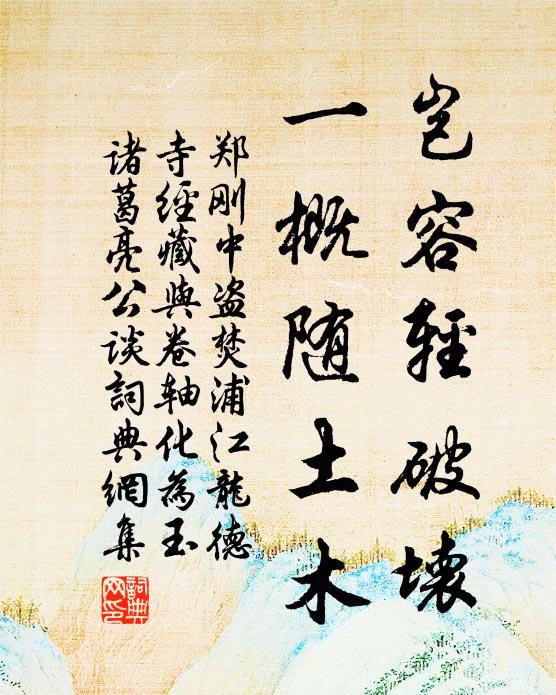 岂容轻破壊
一概随土木
郑刚中盗焚浦江龍德
寺經藏與卷轴化為玉
诸葛亮公谈詞典網集
詞典
网印